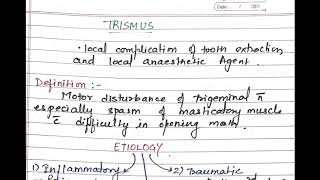 Date : / /201
TRISMUS
• local complication of tooth extraction
and local anaesthetic Agent.
Definition :-
Motor disturbance of trigeminal n̄
especially spasm of masticatory muscle
c̄ difficulty in opening mouth.
ETIOLOGY
1) Inflammatory 2) Traumatic